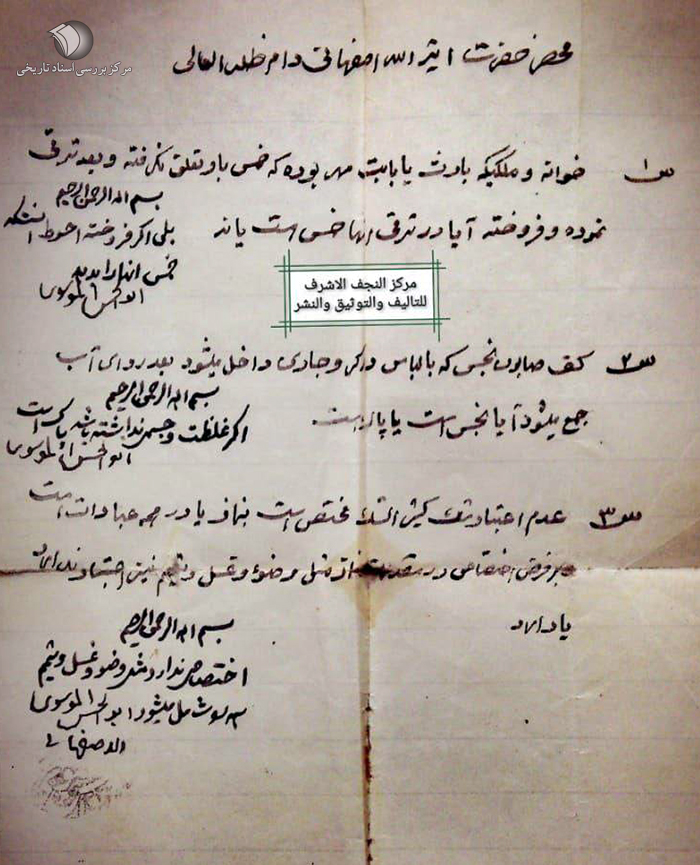 مرکز بررسی اسناد تاریخی
محضر حضرت ایة الله اصفهانی دام ظله العالی
س۱ خوانه و ملکیکه بارث یا بابت مهر بوده که خمس باو تعلق نگرفته و بعد ترقی
نموده و فروخته آیا در ترقی انها خمس است یا نه
بسم الله الرحمن الرحیم
بلی اکر فروخته احوط انستکه
خمس انها را بدهد
ابو الحسن الموسوی
مرکز النجف الاشرف
للتالیف والتوثیق والنشر
س۲ کف صابون نجس که با لباس در کر و جاری داخل میشود بعد روی آب
جمع میشود آیا نجس است یا پاک است
بسم الله الرحمن الرحیم
اکر غلظت و جسم نداشته باشد پاک است
ابو الحسن الموسوی
س۳ عدم اعتبار شک کثیر الشک مختص است بنماز یا در همه عبادات است
و بر فرض اختصاص در مقدمات نماز مثل وضوء و غسل و تیمم نیز اعتبار ندارد
یا دارد
بسم الله الرحمن الرحیم
اختصاص ندارد وضو و غسل و تیمم
شامل میشود ابو الحسن الموسوی
الاصفهانی